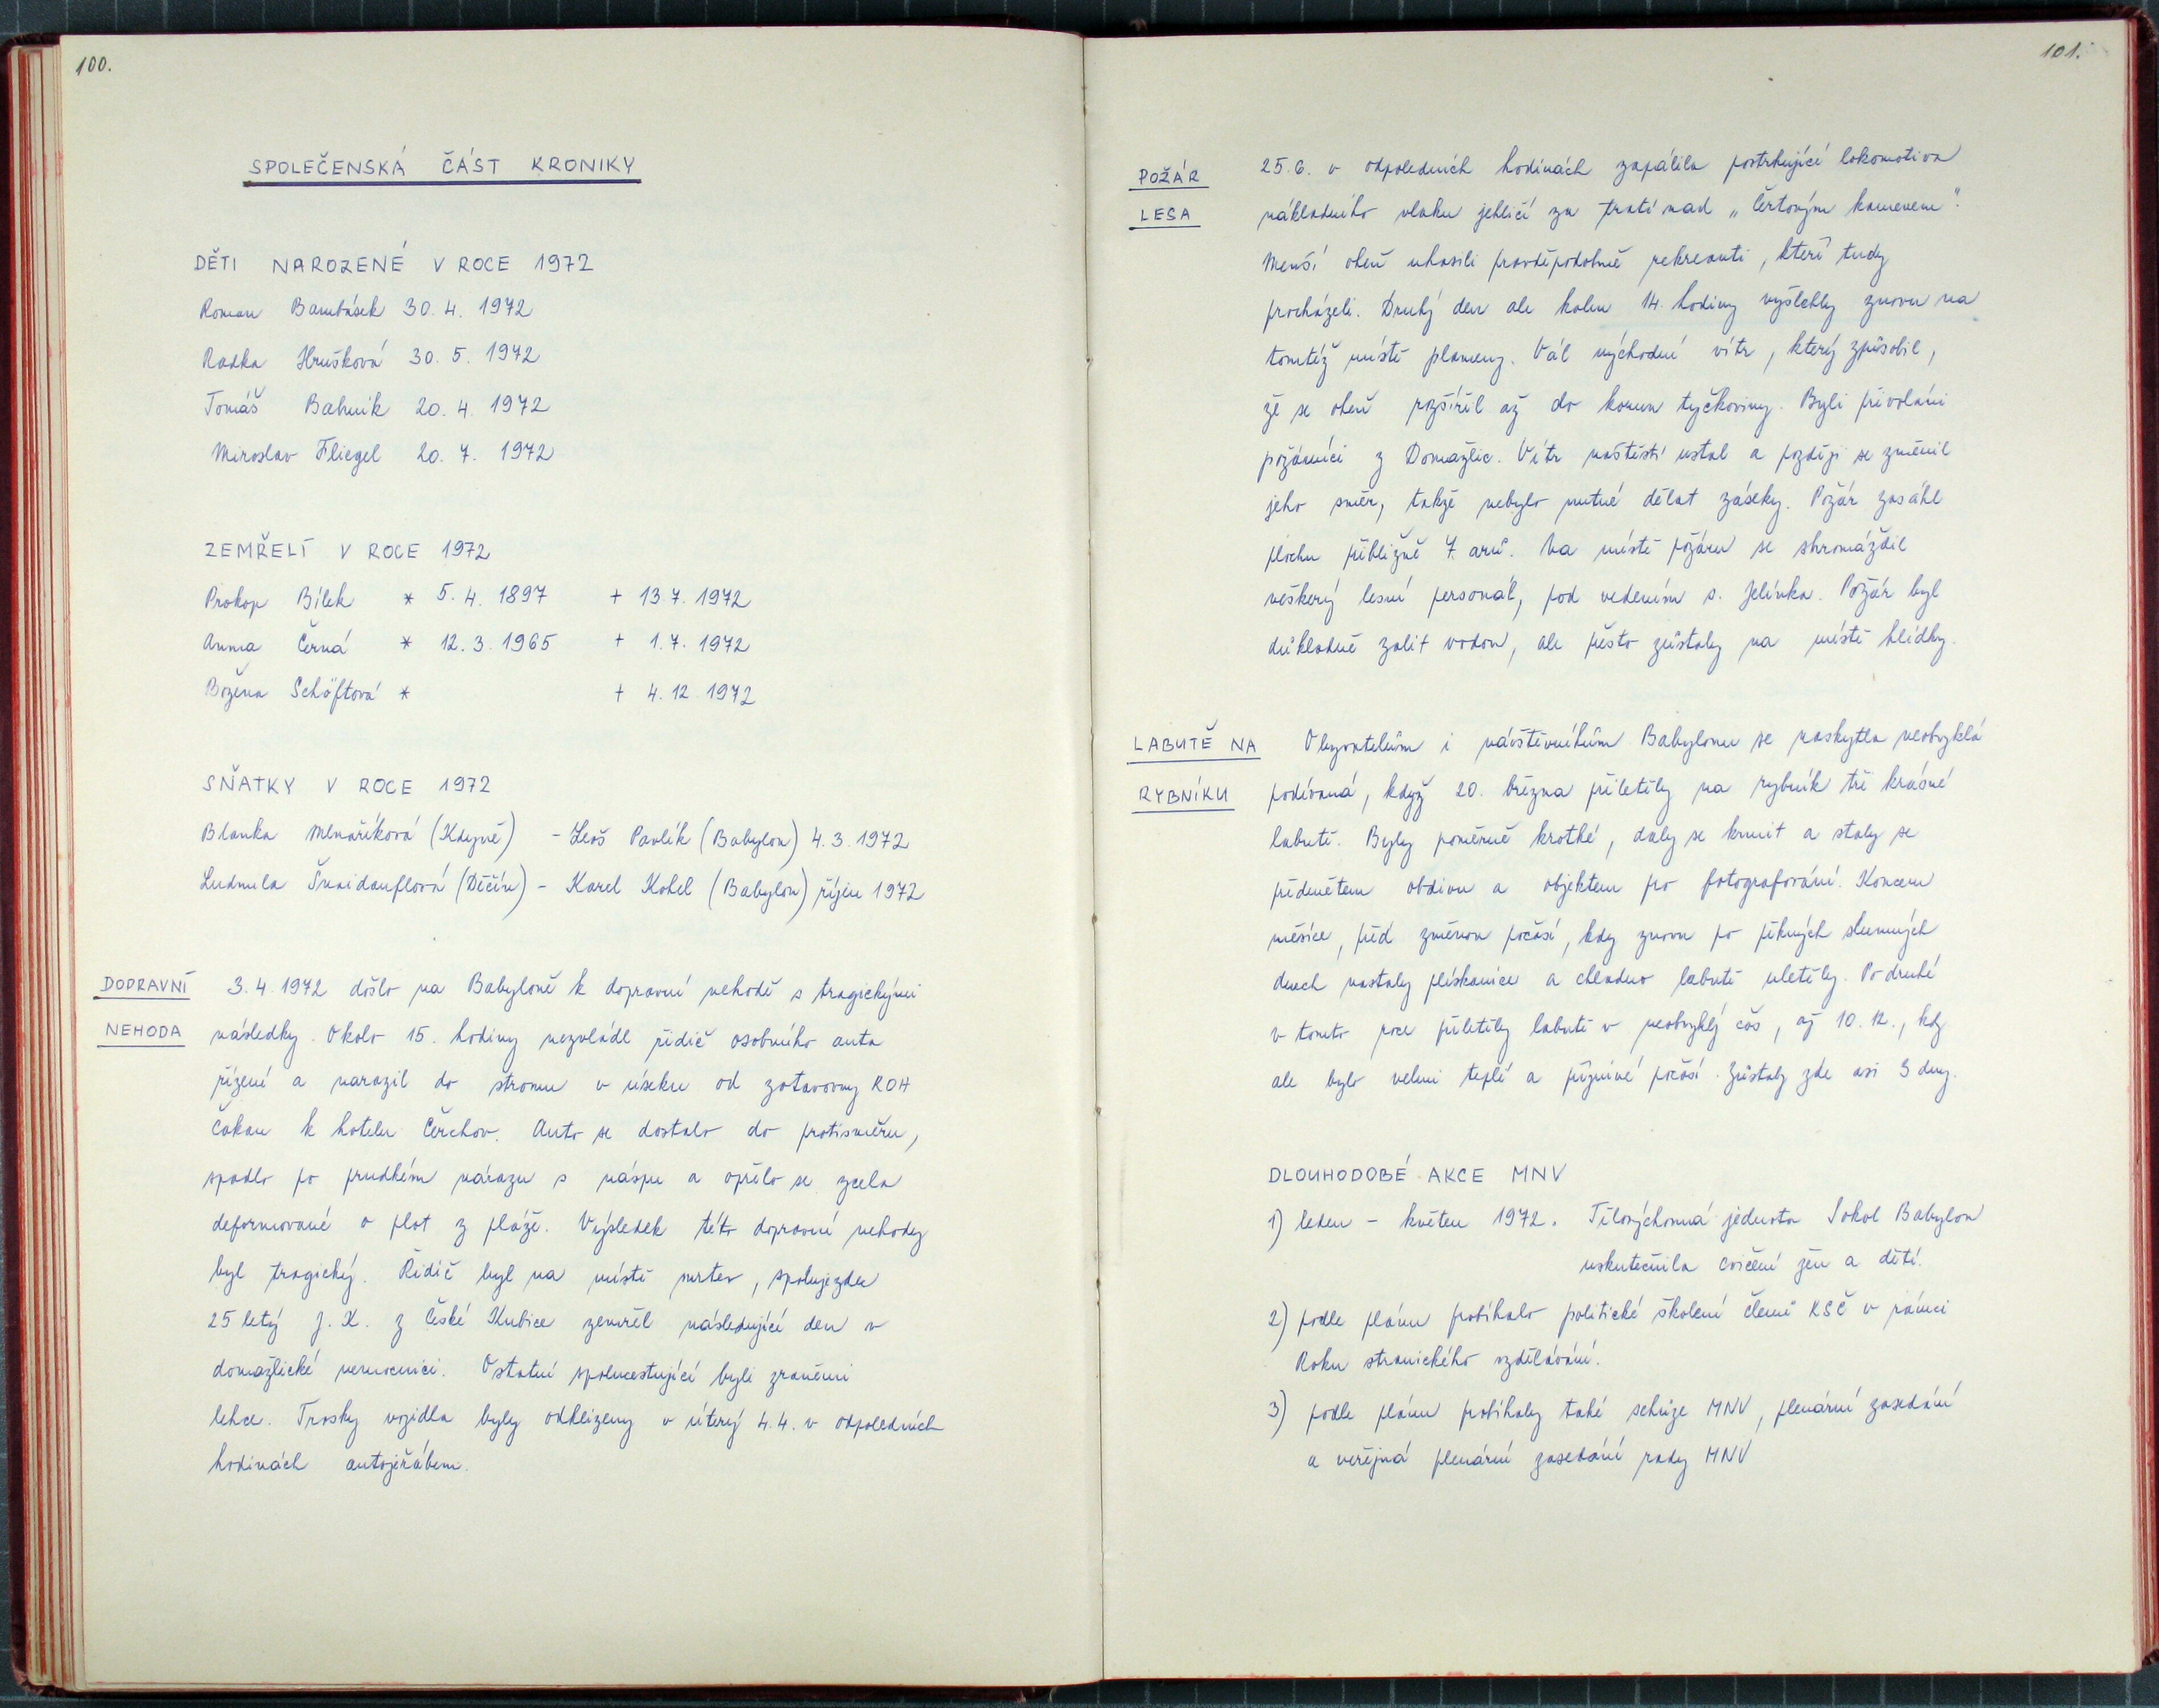 100.
SPOLEČENSKÁ ČÁST KRONIKY
DĚTI NAROZENÉ V ROCE 1972
Roman Bambásek 30. 4. 1972
Radka Hrušková 30. 5. 1972
Tomáš Babník 20. 4. 1972
Miroslav Fliegel 20. 7. 1972
ZEMŘELÍ V ROCE 1972
Prokop Bílek * 5. 4. 1897 + 13 7. 1972
Anna Černá * 12. 3. 1965 + 1. 7. 1972
Božena Schöftová * + 4. 12 1972
SŇATKY V ROCE 1972
Blanka Mlnaříková (Kdyně) - Leoš Pavlík (Babylon) 4. 3. 1972
Ludmila (Děčín) - Karel Kohel (Babylon) říjen 1972
DOPRAVNÍ
NEHODA
3. 4. 1972 došlo na Babyloně k dopravní nehodě s tragickými
následky. Okolo 15. hodiny nezvládl řidič osobního auta
řízení a narazil do stromu v úseku od zotavovny ROH
Čakan k hotelu Čerchov. Auto se dostalo do protisměru,
spadlo po prudkém nárazu s náspu a opřelo se zcela
deformované o plot z pláže. Výsledek této dopravní nehody
byl tragický. Řidič byl na místě mrtev, spolujezdec
25 letý J. K. z České Kubice zemřel následující den v
domažlické nemocnici. Ostatní spolucestující byli zraněni
lehce. Trosky vozidla byly odklizeny v úterý 4. 4. v odpoledních
hodinách autojeřábem.
101.
POŽÁR
LESA
25. 6. v odpoledních hodinách zapálila postrkující lokomotiva
nákladního vlaku jehličí za tratí nad „Čertovým kamenem".
Menší oheň uhasili pravděpodobně rekreanti, kteří tudy
procházeli. Druhý den ale kolem 14. hodiny vyšlehly znovu na
tomtéž místě plameny. Vál východní vítr, který způsobil,
že se oheň rozšířil až do korun tyčkoviny. Byli přivoláni
požárníci z Domažlic. Vítr naštěstí ustal a později se změnil
jeho směr, takže nebylo nutné dělat záseky. Požár zasáhl
plochu přibližně 7 arů. Na místě požáru se shromáždil
veškerý lesní personál, pod vedením s. Jelínka. Požár byl
důkladně zalit vodou, ale přesto zůstaly na místě hlídky.
LABUTĚ NA
RYBNÍKU
Obyvatelům i návštěvníkům Babylonu se naskytla neobvyklá
podívaná, když 20. března přiletěly na rybník tři krásné
labutě. Byly poměrně krotké, daly se krmit a staly se
předmětem obdivu a objektem pro fotografování. Koncem
měsíce, před změnou počasí, kdy znovu po pěkných slunných
dnech nastaly plískanice a chladno labutě uletěly. Po druhé
v tomto roce přiletěly labutě v neobvyklý čas, až 10. 12., kdy
ale bylo velmi teplé a příznivé počasí. Zůstaly zde asi 3 dny.
DLOUHODOBÉ AKCE MNV
1) leden - květen 1972. Tělovýchovná jednota Sokol Babylon
uskutečnila cvičení žen a dětí.
2) podle plánu probíhalo politické školení členů KSČ v rámci
Roku stranického vzdělávání.
3) podle plánu probíhaly také schůze MNV, plenární zasedání
a veřejná plenární zasedání rady MNV